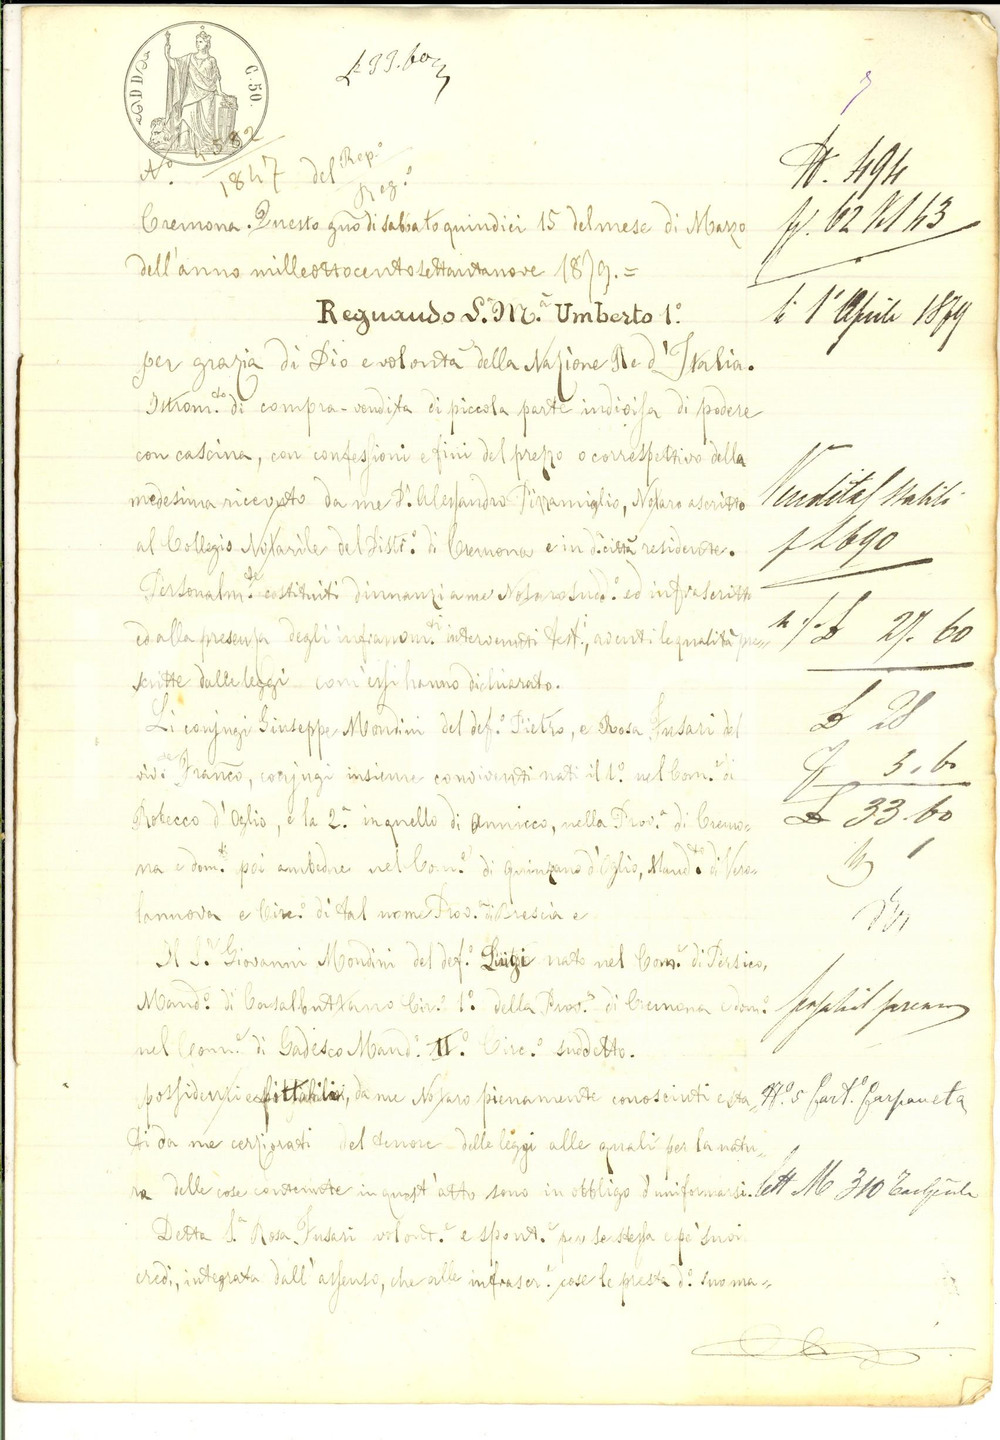 C. 50.
£ 33.60
N.° 4582
1847 del Rep.°
Reg.°
Cremona. Questo gno di sabbato quindici 15 del mese di Marzo
dell'anno milleottocentosettantanove 1879. =
Regnando S.M.ª Umberto 1.°
per grazia di Dio e volontà della Nazione Re d'Italia.
Istrom.to di compra-vendita di piccola parte indivisa di podere
con cascina, con confessioni e fini del prezzo o correspettivo della
medesima ricevuto da me D.r Alessandro Pizzamiglio, Notaro ascritto
al Collegio Notarile del Distr.° di Cremona e in d.ª città residente.
Personalm.te costituiti dinnanzi a me Notaro sud.° ed infrascritto
ed alla presenza degli infranom.ti intervenuti test.i, aventi le qualità pre-
scritte dalle leggi com'essi hanno dichiarato.
Li conjugi Giuseppe Mondini del def.° Pietro, e Rosa Fusari del
viv.e Franco, conjugi insieme conviventi nati il 1.° nel Com.e di
Robecco d'Oglio, e la 2.ª in quello di Annicco, nella Prov.ª di Cremo-
na e dom.ti poi ambedue nel Com.e di Quinzano d'Oglio, Mand.to di Vero-
lannova e Circ.° di tal nome Prov.ª di Brescia e
Il S.r Giovanni Mondini del def.° Luigi nato nel Com.e di Persico,
Mand.° di Casalbuttano Circ.° 1.° della Prov.ª di Cremona e dom.°
nel Com.e di Gadesco Mand.° II.° Circ.° suddetto.
possidenti e fittabili, da me Notaro pienamente conosciuti e sta-
ti da me cerziorati del tenore delle leggi alle quali per la natu-
ra delle cose contenute in quest'atto sono in obbligo d'uniformarsi.
Detta S.ª Rosa Fusari volont.e e spont.e per se stessa e pe' suoi
eredi, integrata dall'assenso, che alle infrascr.e cose le presta d.° suo ma-
N. 494
f. 62 Vol 43
li 1° Aprile 1879
Vendita Stabili
£ 690
£ 27.60
£ 28
5.60
£ 33.60
N.° 5 Cart.° Carpaneta
Lett M 310